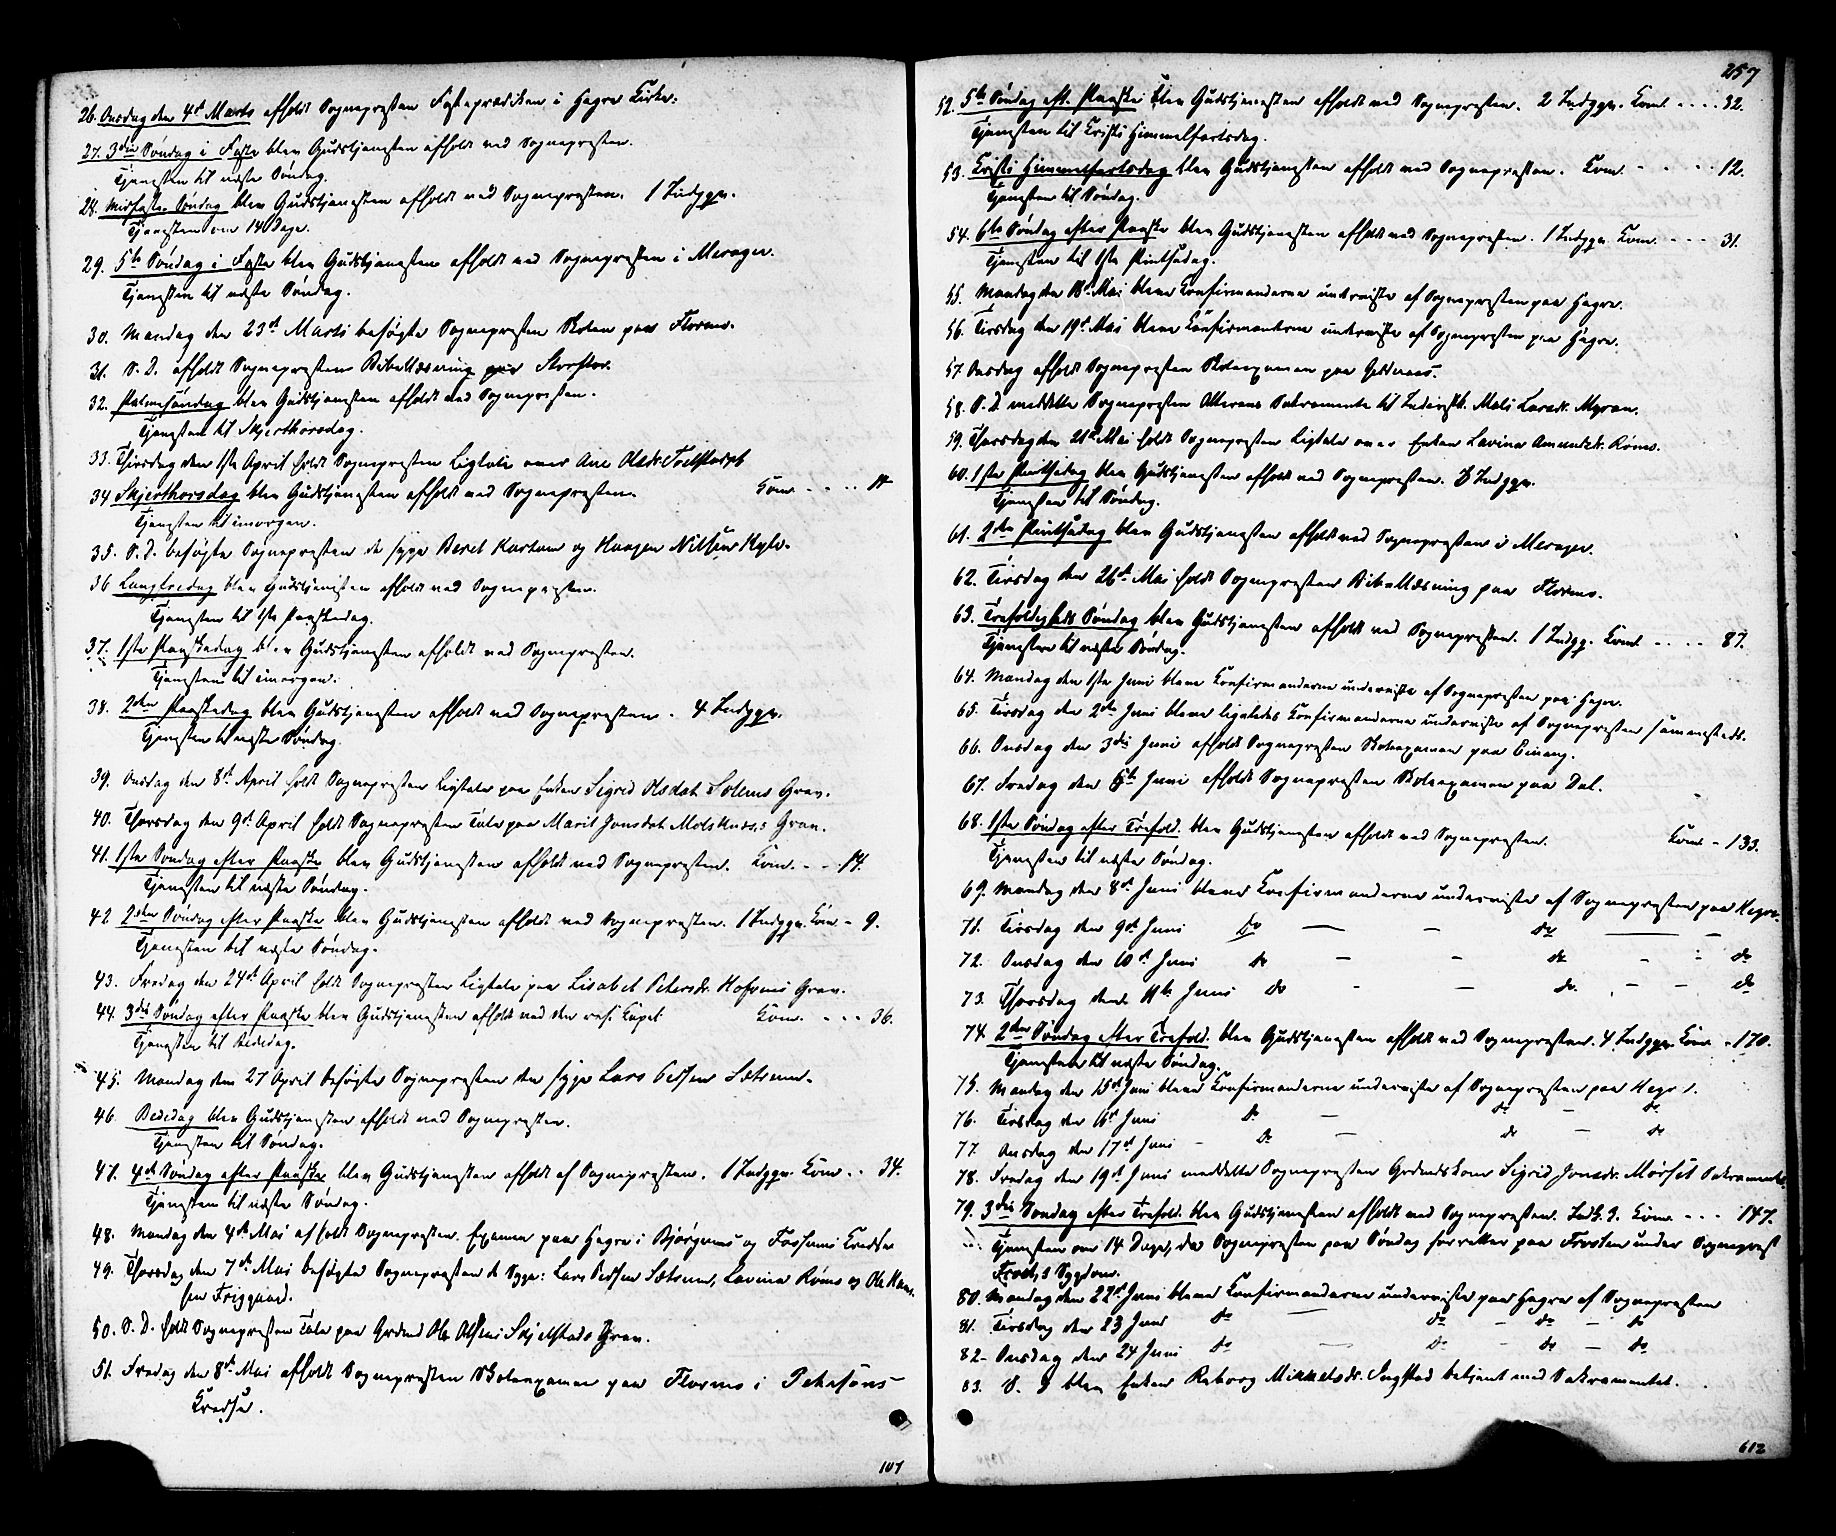 26. Onsdag den 4de Marts afholdt Sognepresten Fasteprædiken i Hegre Kirke.
27. 3die Søndag i Faste blev Gudstjenesten afholdt ved Sognepresten.
Tjenesten til næste Søndag.
28. Midfaste Søndag blev Gudstjenesten afholdt ved Sognepresten. 1 Indggn.
Tjenesten om 14 Dage.
29. 5te Søndag i Faste blev Gudstjenesten afholdt ved Sognepresten i Merager.
Tjenesten til næste Søndag.
30. Mandag den 23de Marts besøgte Sognepresten Skolen paa Flornes.
31. S. D. afholdt Sognepresten Bibellæsning paa
32. Palmesøndag blev Gudstjenesten afholdt ved Sognepresten.
Tjenesten til Skjerthorsdag.
33. Thirsdag den 1ste April holdt Sognepresten Ligtale over Ane Olsdr.
34 Skjerthorsdag blev Gudstjenesten afholdt ved Sognepresten. Kom. - - - -
Tjenesten til imorgen.
35. S. D. besøgte Sognepresten de syge Beret Kartum og Haagen Nilsen Hylo.
36 Langfredag blev Gudstjenesten afholdt ved Sognepresten.
Tjenesten til 1ste Paaskedag.
37. 1ste Paaskedag blev Gudstjenesten afholdt ved Sognepresten.
Tjenesten til imorgen.
38. 2den Paaskedag blev Gudstjenesten afholdt ved Sognepresten. 4 Indggn.
Tjenesten til næste Søndag.
39. Onsdag den 8de April holdt Sognepresten Ligtale paa Enken Sigrid Olsdat. Solems Grav.
40. Thorsdag den 9de April holdt Sognepresten Tale paa Marit Jonsdat. Moksnæs's Grav.
41. 1ste Søndag efter Paaske blev Gudstjenesten afholdt ved Sognepresten. Kom. - - - 14.
Tjenesten til næste Søndag.
42 2den Søndag efter Paaske blev Gudstjenesten afholdt ved Sognepresten. 1 Indggn. Kom - 9.
Tjenesten til næste Søndag.
43. Fredag den 24de April holdt Sognepresten Ligtale paa Lisabet Petersdr. Grav.
44. 3die Søndag efter Paaske blev Gudstjenesten afholdt ved den res. Kapel. Kom. - - - 36.
Tjenesten til Bededag.
45. Mandag den 27 April besøgte Sognepresten den syge Lars Pedsen
46. Bededag blev Gudstjenesten afholdt ved Sognepresten.
Tjenesten til Søndag.
47. 4de Søndag efter Paaske blev Gudstjenesten afholdt af Sognepresten. 1 Indggn. Kom. - - 34.
Tjenesten til næste Søndag.
48. Mandag den 4de Mai afholdt Sognepresten Examen paa Hegre i Bjørgums og Fossums Kredse
49. Thorsdag den 7de Mai besøgte Sognepresten de Syge: Lars Pedsen Lavina Røms og Ole Han-
sen Friggaard.
50. S. D. holdt Sognepresten Tale paa Grdmd Ole Olsens Skjelstads Grav.
51. Fredag den 8de Mai afholdt Sognepresten Skoleexamen paa Flornes i
Kredse.
107
257
52. 5te Søndag eft. Paaske blev Gudstjenesten afholdt ved Sognepresten. 2 Indggn. Kom. - - - - 32.
Tjenesten til Kristi Himmelfartsdag.
53. Kristi Himmelfartsdag blev Gudstjenesten afholdt ved Sognepresten. Kom. - - - - - 12.
Tjenesten til Søndag.
54. 6te Søndag efter Paaske blev Gudstjenesten afholdt ved Sognepresten. 1 Indggn. Kom. - - - 31.
Tjenesten til 1ste Pintsedag.
55. Mandag den 18de Mai bleve Konfirmanderne underviste af Sognepresten paa Hegre.
56. Tirsdag den 19de Mai bleve Konfirmanterne underviste af Sognepresten paa Hegre.
57. Onsdag afholdt Sognepresten Skoleexamen paa
58. S. D. meddelte Sognepresten Alterens Sakramente til Mali Larsdr. Myran.
59. Thorsdag den 21de Mai holdt Sognepresten Ligtale over Enken Lavina Amundsdr. Røms.
60. 1ste Pintsedag blev Gudstjenesten afholdt ved Sognepresten. 3 Indggn.
Tjenesten til Søndag.
61. 2den Pintsedag blev Gudstjenesten afholdt ved Sognepresten i Merager.
62. Tirsdag den 26de Mai holdt Sognepresten Bibellæsning paa Flornes.
63. Trefoldigheds Søndag blev Gudstjenesten afholdt ved Sognepresten. 1 Indgg. Kom. - - - - 87.
Tjenesten til næste Søndag.
64. Mandag den 1ste Juni bleve Konfirmanderne underviste af Sognepresten paa Hegre.
65. Tirsdag den 2de Juni bleve ligeledes Konfirmanderne underviste af Sognepresten sammesteds.
66. Onsdag den 3die Juni afholdt Sognepresten Skoleexamen paa Einang.
67. Fredag den 5te Juni afholdt Sognepresten Skoleexamen paa Dal.
68. 1ste Søndag efter Trefold. blev Gudstjenesten afholdt ved Sognepresten. Kom - 133.
Tjenesten til næste Søndag.
69. Mandag den 8de Juni bleve Konfirmanderne underviste af Sognepresten paa Hegre.
71. Tirsdag den 9de Juni do — - do — -
72. Onsdag den 10de Juni do - - do - - do
73. Thorsdag den 11te Juni do - - do. - - - do
74. 2den Søndag efter Trefold. blev Gudstjenesten afholdt ved Sognepresten. 4 Indggn. Kom - 170.
Tjenesten til næste Søndag.
75. Mandag den 15de Juni bleve Konfirmanderne underviste af Sognepresten paa Hegre.
76. Tirsdag den 16de Juni do - do - do
77. Onsdag den 17de Juni - do - do - do
78. Fredag den 19de Juni meddelte Sognepresten Grdmdskone Sigrid Jonsdr. Mørset Sakramentet.
79. 3die Søndag efter Trefold. blev Gudstjenesten afholdt ved Sognepresten. Indg. 3. Kom. - - - 147.
Tjenesten om 14 Dage, da Sognepresten paa Søndag forretter paa Frosten under Sogneprest
Sygdom.
80. Mandag den 22de Juni bleve Konfirmanderne underviste paa Hegre af Sognepresten
81. Tirsdag den 23 Juni do — do - do - do
82 - Onsdag den 24 Juni do — do - do - do
83. S. D blev Enken Reborg Mikkelsdr. Ingstad betjent med Sakramentet.
612